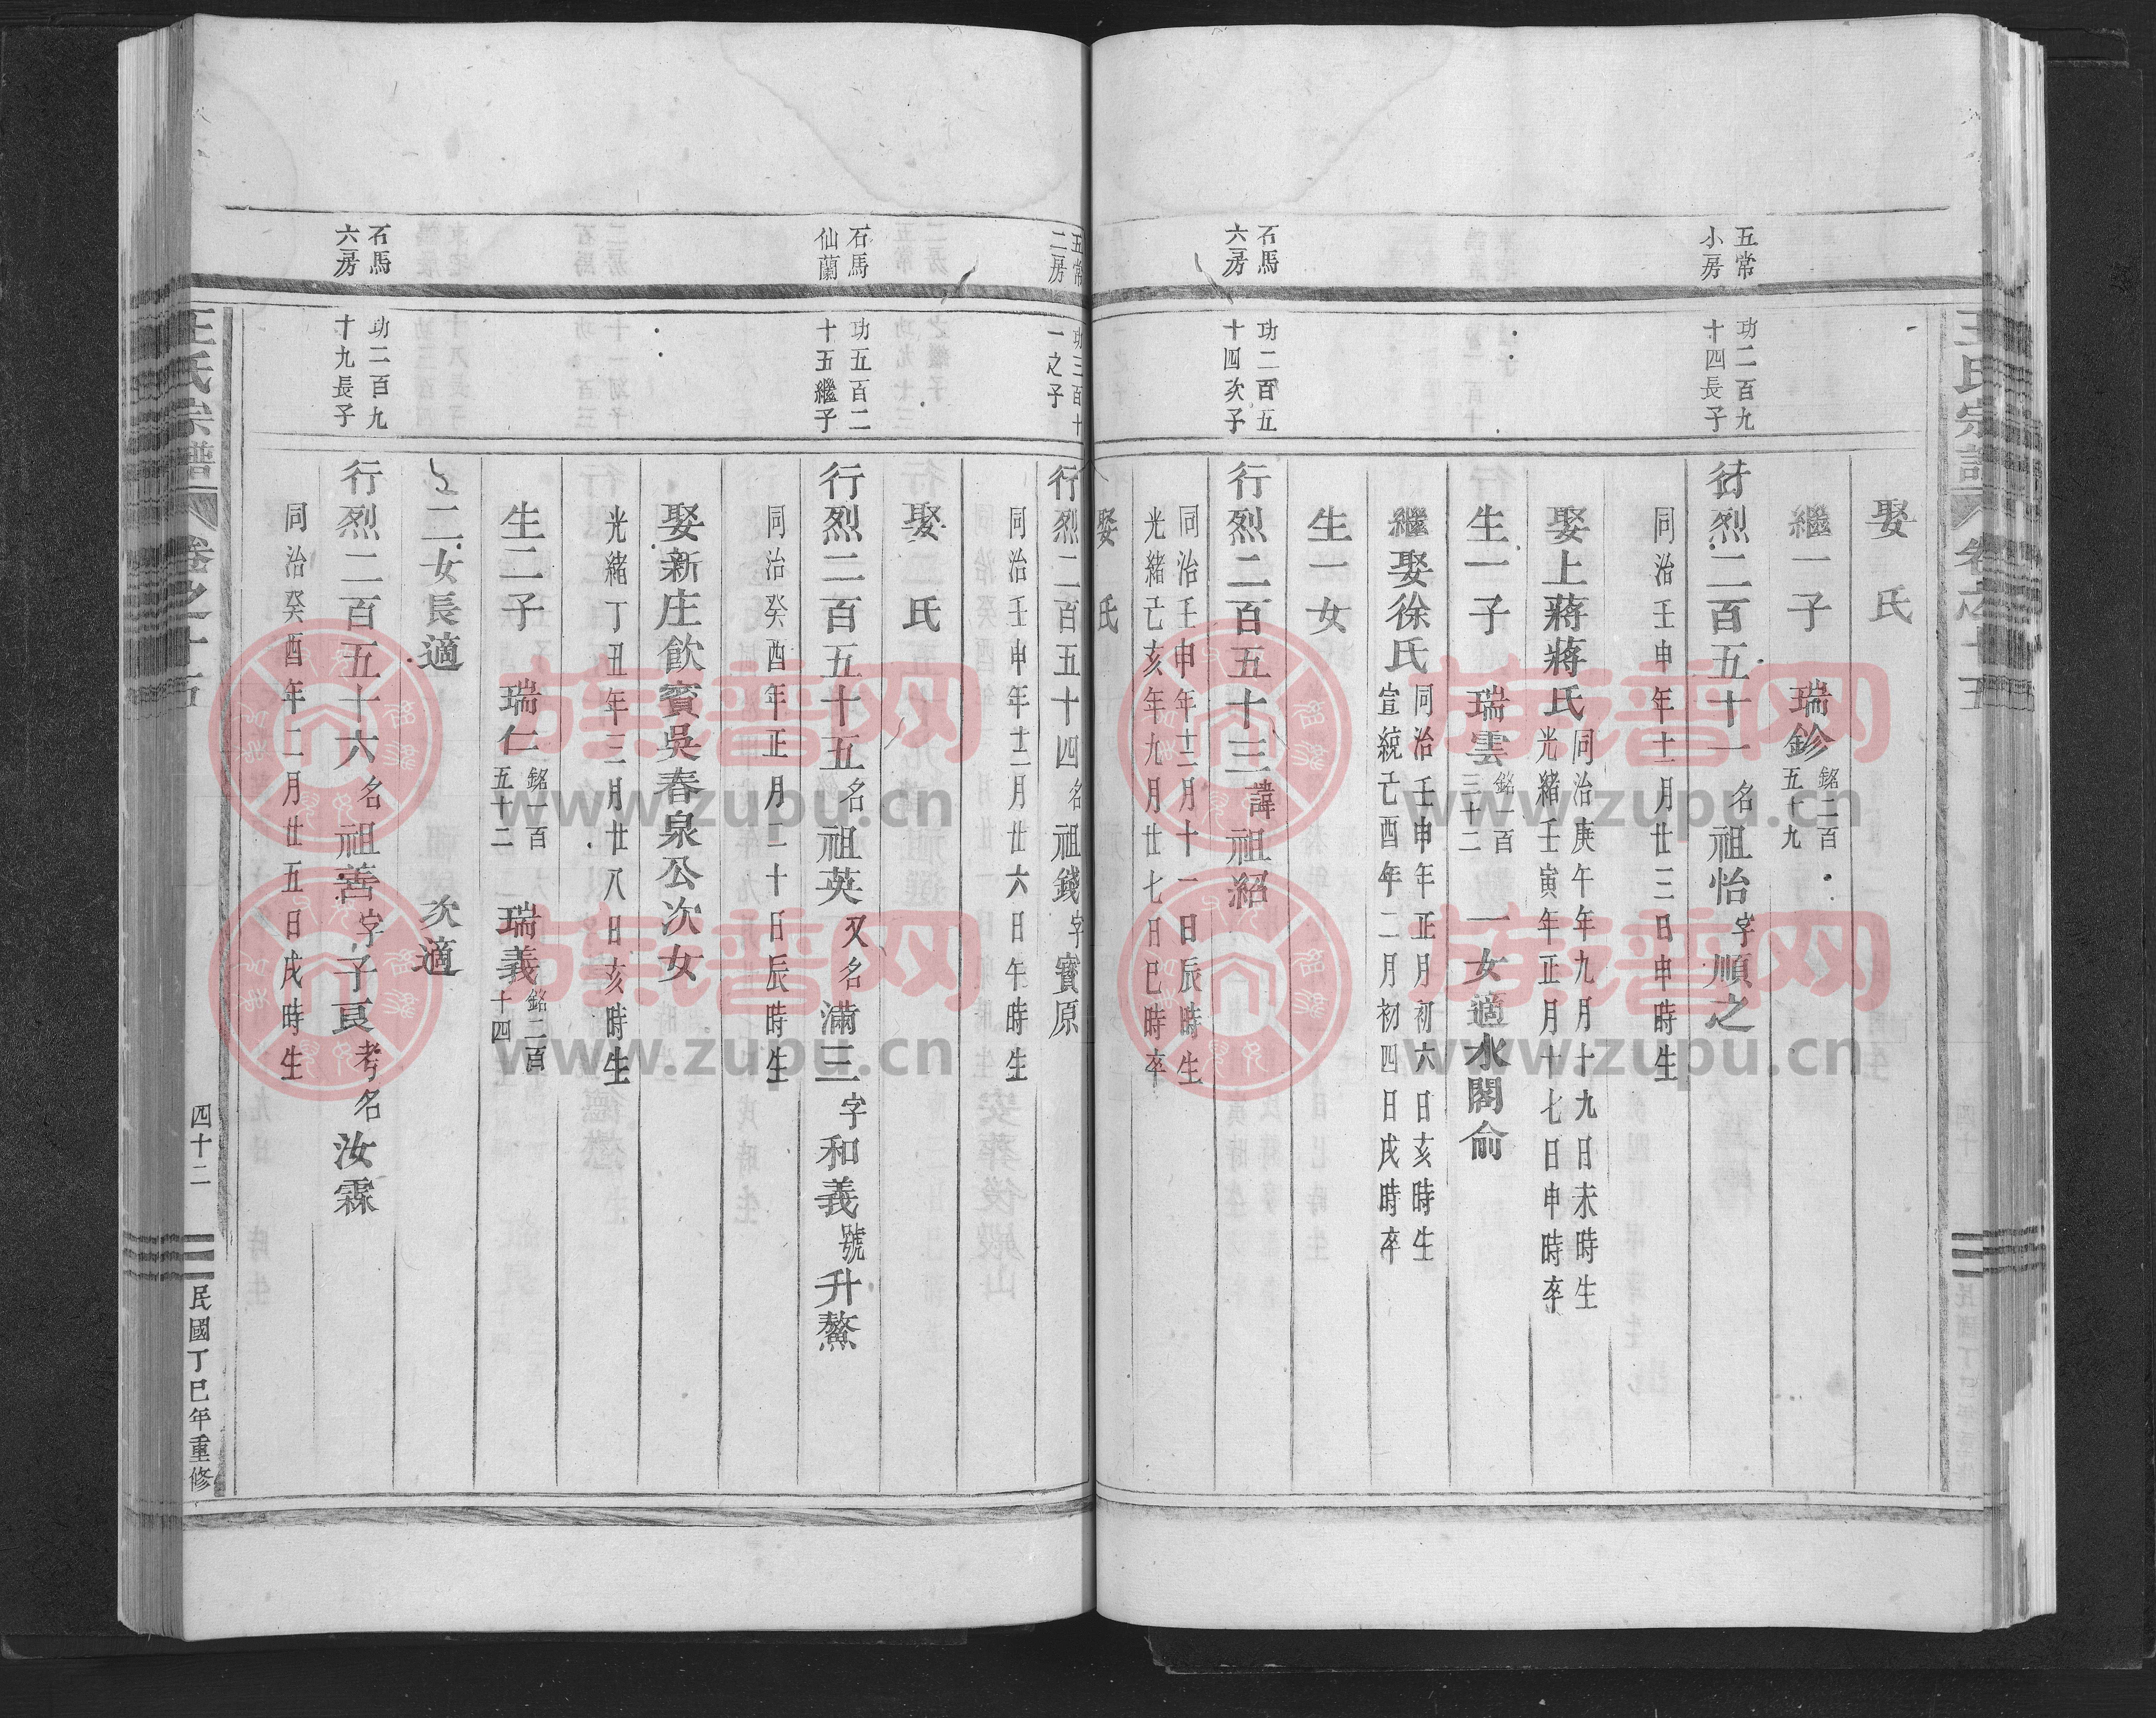 王氏宗譜 卷之十五
娶 氏
繼一子 瑞鉁 銘二百五十九
五常小房
功二百九十四長子
行烈二百五十一 名祖怡字順之
同治壬申年十一月廿三日申時生
娶上蔣蔣氏 同治庚午年九月十九日未時生 光緒壬寅年正月十七日申時卒
生一子 瑞雲 銘一百三十二 一女適水閣俞
繼娶徐氏 同治壬申年正月初六日亥時生 宣統己酉年二月初四日戌時卒
生一女
石馬六房
功二百五十四次子
行烈二百五十三 諱祖紹
同治壬申年十二月十一日辰時生 光緒己亥年九月廿七日巳時卒
娶 氏
五常二房
功三百十一之子
行烈二百五十四 名祖錢字寶原
同治壬申年十二月廿六日午時生
娶 氏
石馬仙蘭
功五百二十五繼子
行烈二百五十五 名祖英又名滿三字和義號升鰲
同治癸酉年正月二十日辰時生
娶新庄飲賓吳春泉公次女
光緒丁丑年三月廿八日亥時生
生二子 瑞仁 銘一百五十二 瑞義 銘二百十四
二女長適 次適
石馬六房
功二百九十九長子
行烈二百五十六 名祖善字子良考名汝霖
同治癸酉年二月廿五日戌時生
王氏宗譜 卷之十五 四十二 民國丁巳年重修
族譜网
www.zupu.cn
族譜网
www.zupu.cn
族譜网
www.zupu.cn
族譜网
www.zupu.cn